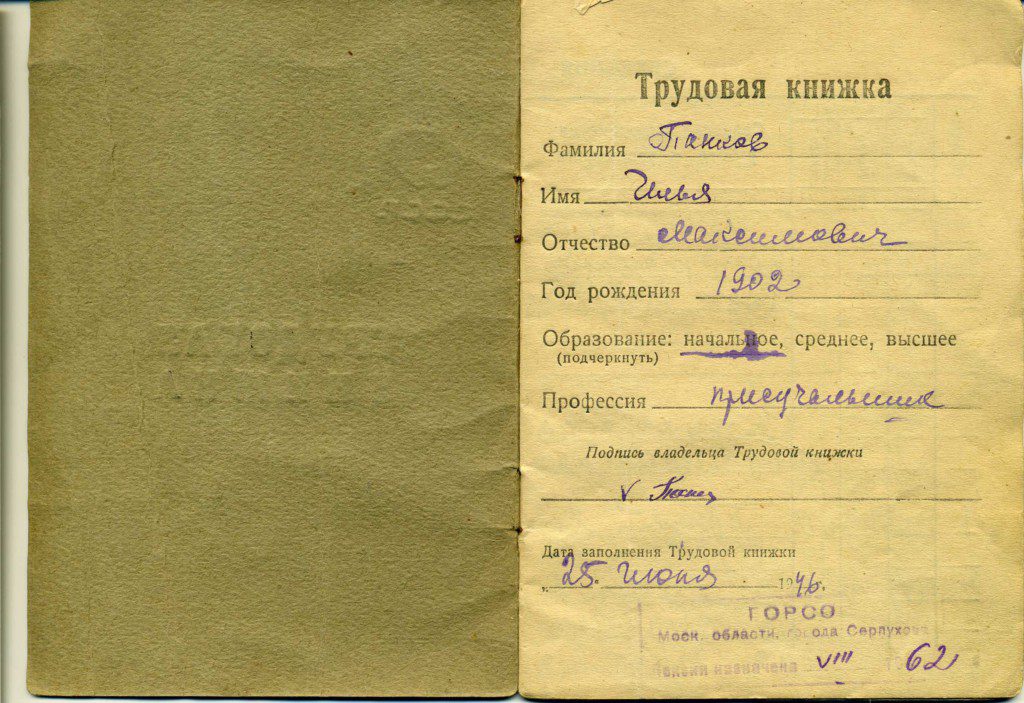 Трудовая книжка
Фамилия Панков
Имя Илья
Отчество Максимович
Год рождения 1902
Образование: начальное, среднее, высшее
(подчеркнуть)
Профессия присучальщик
Подпись владельца Трудовой книжки
V
Дата заполнения Трудовой книжки
„25. Июня 1946.
ГОРСО
Моск. области, города Серпухова
Пенсия назначена VIII 62